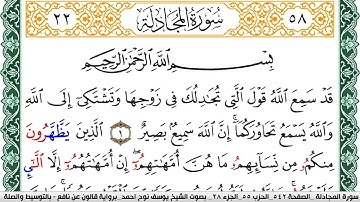 ٥٨ سُورَةُ المُجَادلَة ٢٢
بِسْمِ اللَّهِ الرَّحْمَٰنِ الرَّحِيمِ
قَدْ سَمِعَ اَللَّهُ قَوْلَ اَلَّتِي تُجَٰدِلُكَ فِي زَوْجِهَا وَتَشْتَكِي إِلَى اَللَّهِ
وَاللَّهُ يَسْمَعُ تَحَاوُرَكُمَا إِنَّ اَللَّهَ سَمِيعٌ بَصِيرٌ ١ اَلَّذِينَ يَظَّهَّرُونَ
مِنكُمُۥ مِن نِّسَآئِهِمُۥ مَا هُنَّ أُمَّهَٰتِهِمُۥٓ إِنْ أُمَّهَٰتُهُمُۥٓ إِلَّا اَلَّٰٓـِٔ
سورة المجادلة . الصفحة ٥٤٢ الحزب ٥٥ الجزء ٢٨ . بصوت الشيخ يوسف نوح احمد برواية قالون عن نافع - بالتوسيط والصلة